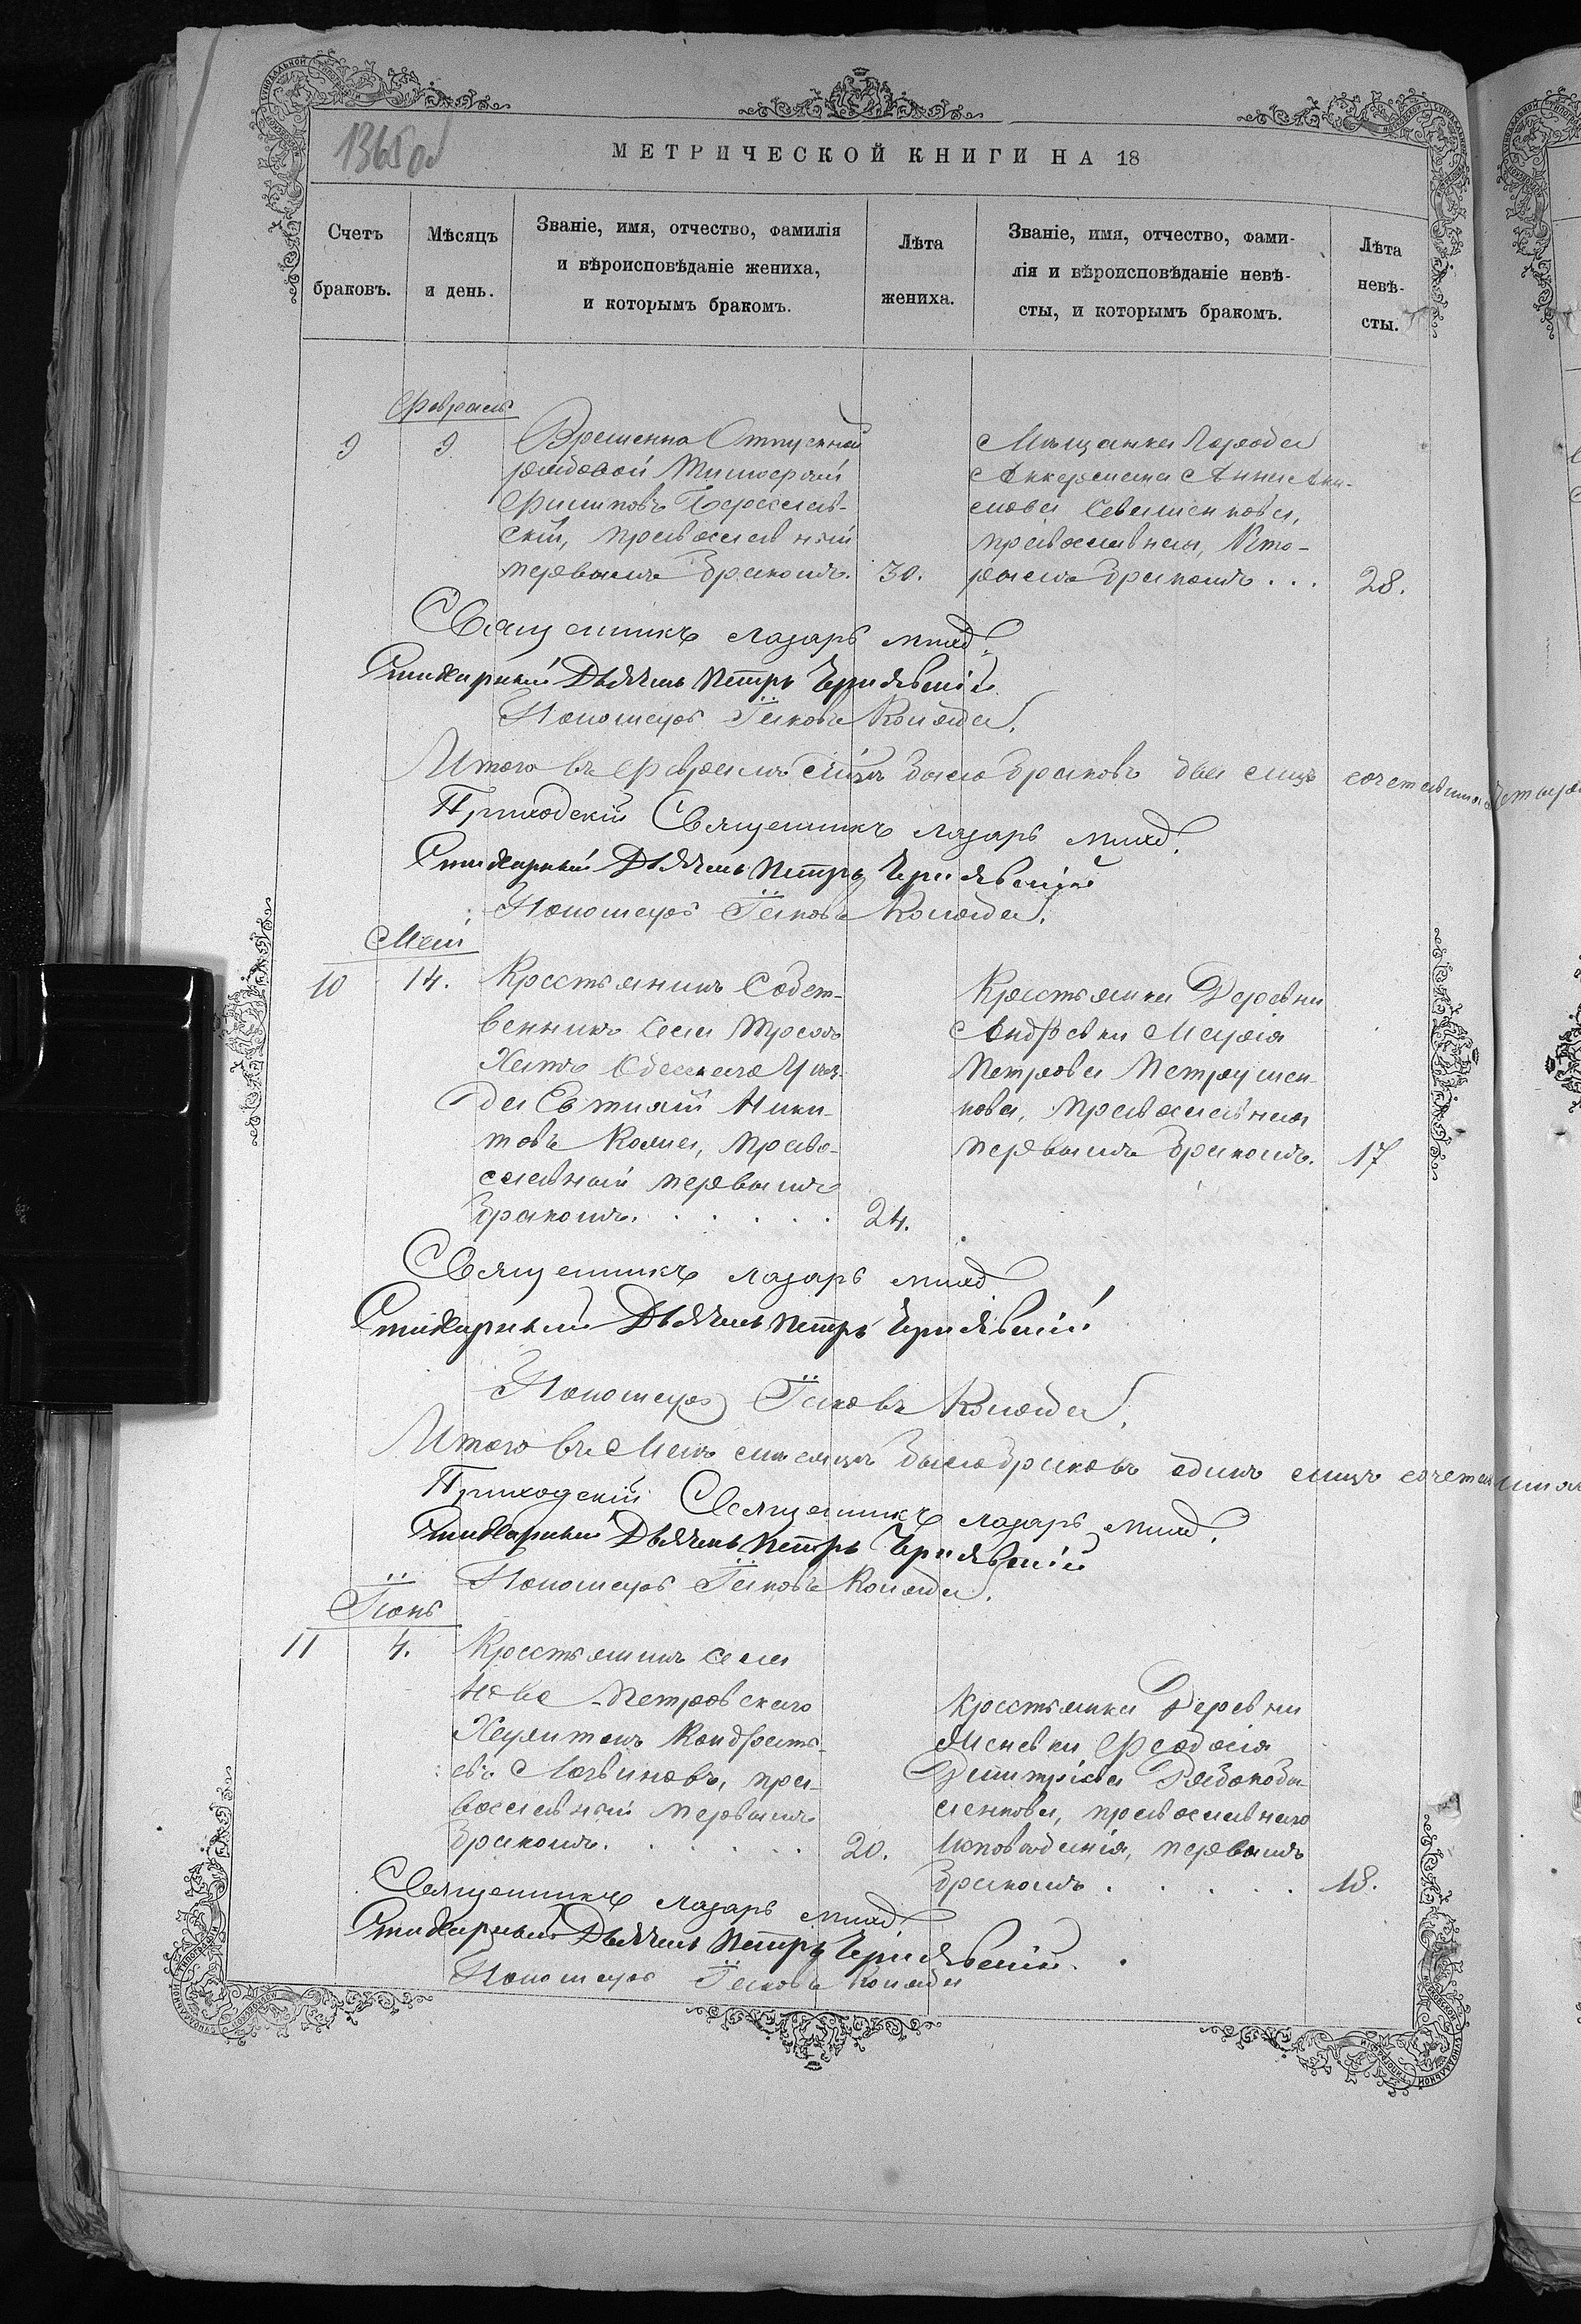 1365 об
МЕТРИЧЕСКОЙ КНИГИ НА 18
Счетъ браковъ.
Мѣсяцъ и день.
Званіе, имя, отчество, фамилія
и вѣроисповѣданіе жениха,
и которымъ бракомъ.
Лѣта жениха.
Званіе, имя, отчество, фами-
лія и вѣроисповѣданіе невѣ-
сты, и которымъ бракомъ.
Лѣта невѣ-
сты.
Февраль
9 9 Временно Отпускной
рядовой Тимофѣй
Филиповъ
скій, православный
первымъ бракомъ. 30.
Мѣщанка Города
Аккермана Анна Аки-
мова
православная, Вто-
рымъ бракомъ . . . 28.
Священникъ Лазарь
Стихарный Дьячекъ Петръ Чернявскій
Пономарь Іаковъ Коляда.
Итого въ Февралѣ мѣцѣ было браковъ два лицъ сочетавшихся четыре
Приходскій Священникъ Лазарь
Стихарный Дьячекъ Петръ Чернявскій
Пономарь Іаковъ Коляда.
Май
10 14. Крестьянинъ Собст-
венникъ Села Троз
Хатъ Одесскаго Уѣз-
да Евтихій Ники-
товъ право-
славный первымъ
бракомъ. . . . . . 24.
Крестьянка Деревни
Андревки Марія
Петрова Петрушен-
кова, православная
первымъ бракомъ. 17
Священникъ Лазарь
Стихарный Дьячекъ Петръ Чернявскій
Пономарь Іаковъ Коляда.
Итого въ Маѣ мѣсяцѣ было браковъ одинъ лицъ
Приходскій Священникъ Лазарь
Стихарный Дьячекъ Петръ Чернявскій
Пономарь Іаковъ Коляда.
Іюнь
11 4. Крестьянинъ села
Ново-Петровскаго
Харитонъ Кондрать-
евъ Логвиновъ, пра-
вославный первымъ
бракомъ. . . . . . 20.
Крестьянка Деревни
Феодосія
Димитріева
православнаго
исповѣданія, первымъ
бракомъ . . . . . 18.
Священникъ Лазарь
Стихарный Дьячекъ Петръ Чернявскій.
Пономарь Іаковъ Коляда